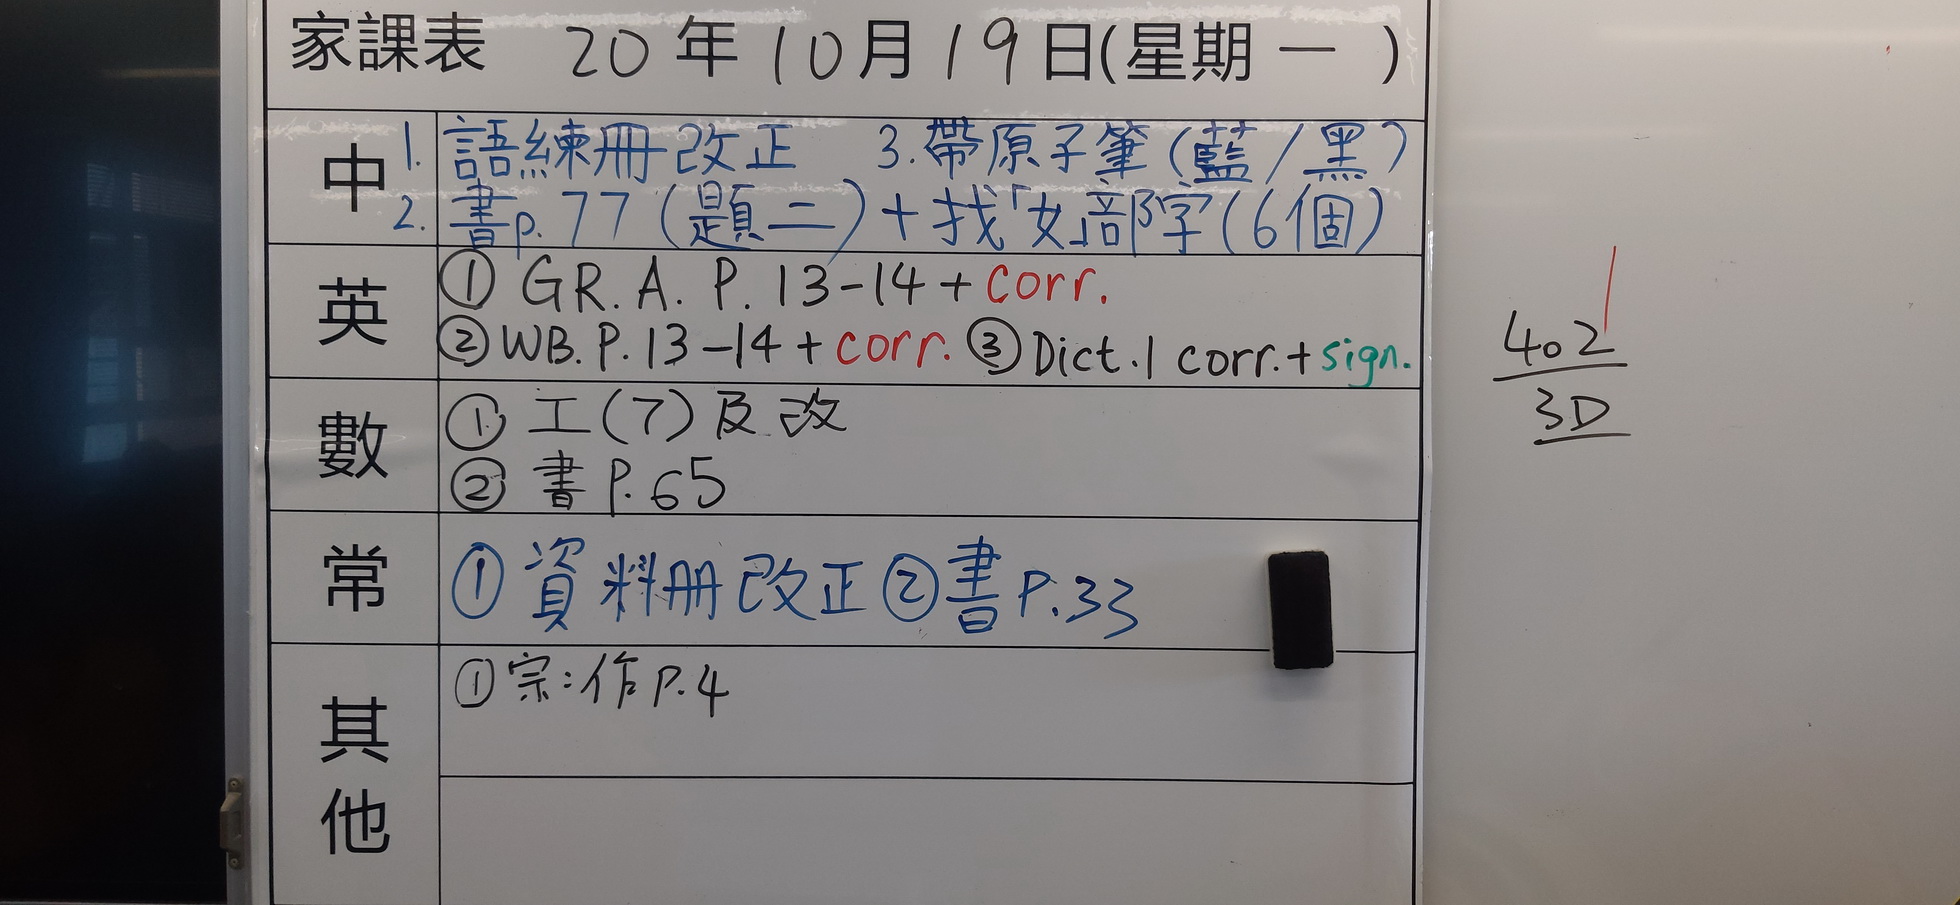 家課表 20年10月19日(星期一)
中
1. 語練冊改正 3. 帶原子筆(藍/黑)
2. 書p.77(題二)+找「女」部字(6個)
英
① GR. A. P. 13-14 + corr.
② WB. P. 13-14 + corr. ③ Dict. 1 corr. + sign.
數
① 工(7)及改
② 書P.65
常
① 資料冊改正 ② 書P.33
其他
① 宗:作P.4
402
3D